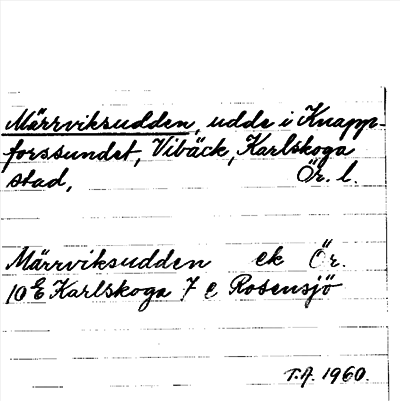 Märrviksudden, udde i Knapp-
forssundet, Vibäck, Karlskoga
stad, Ör. l.
Märrviksudden ek Ör.
10 E Karlskoga 7 c Rosensjö
T.A. 1960.